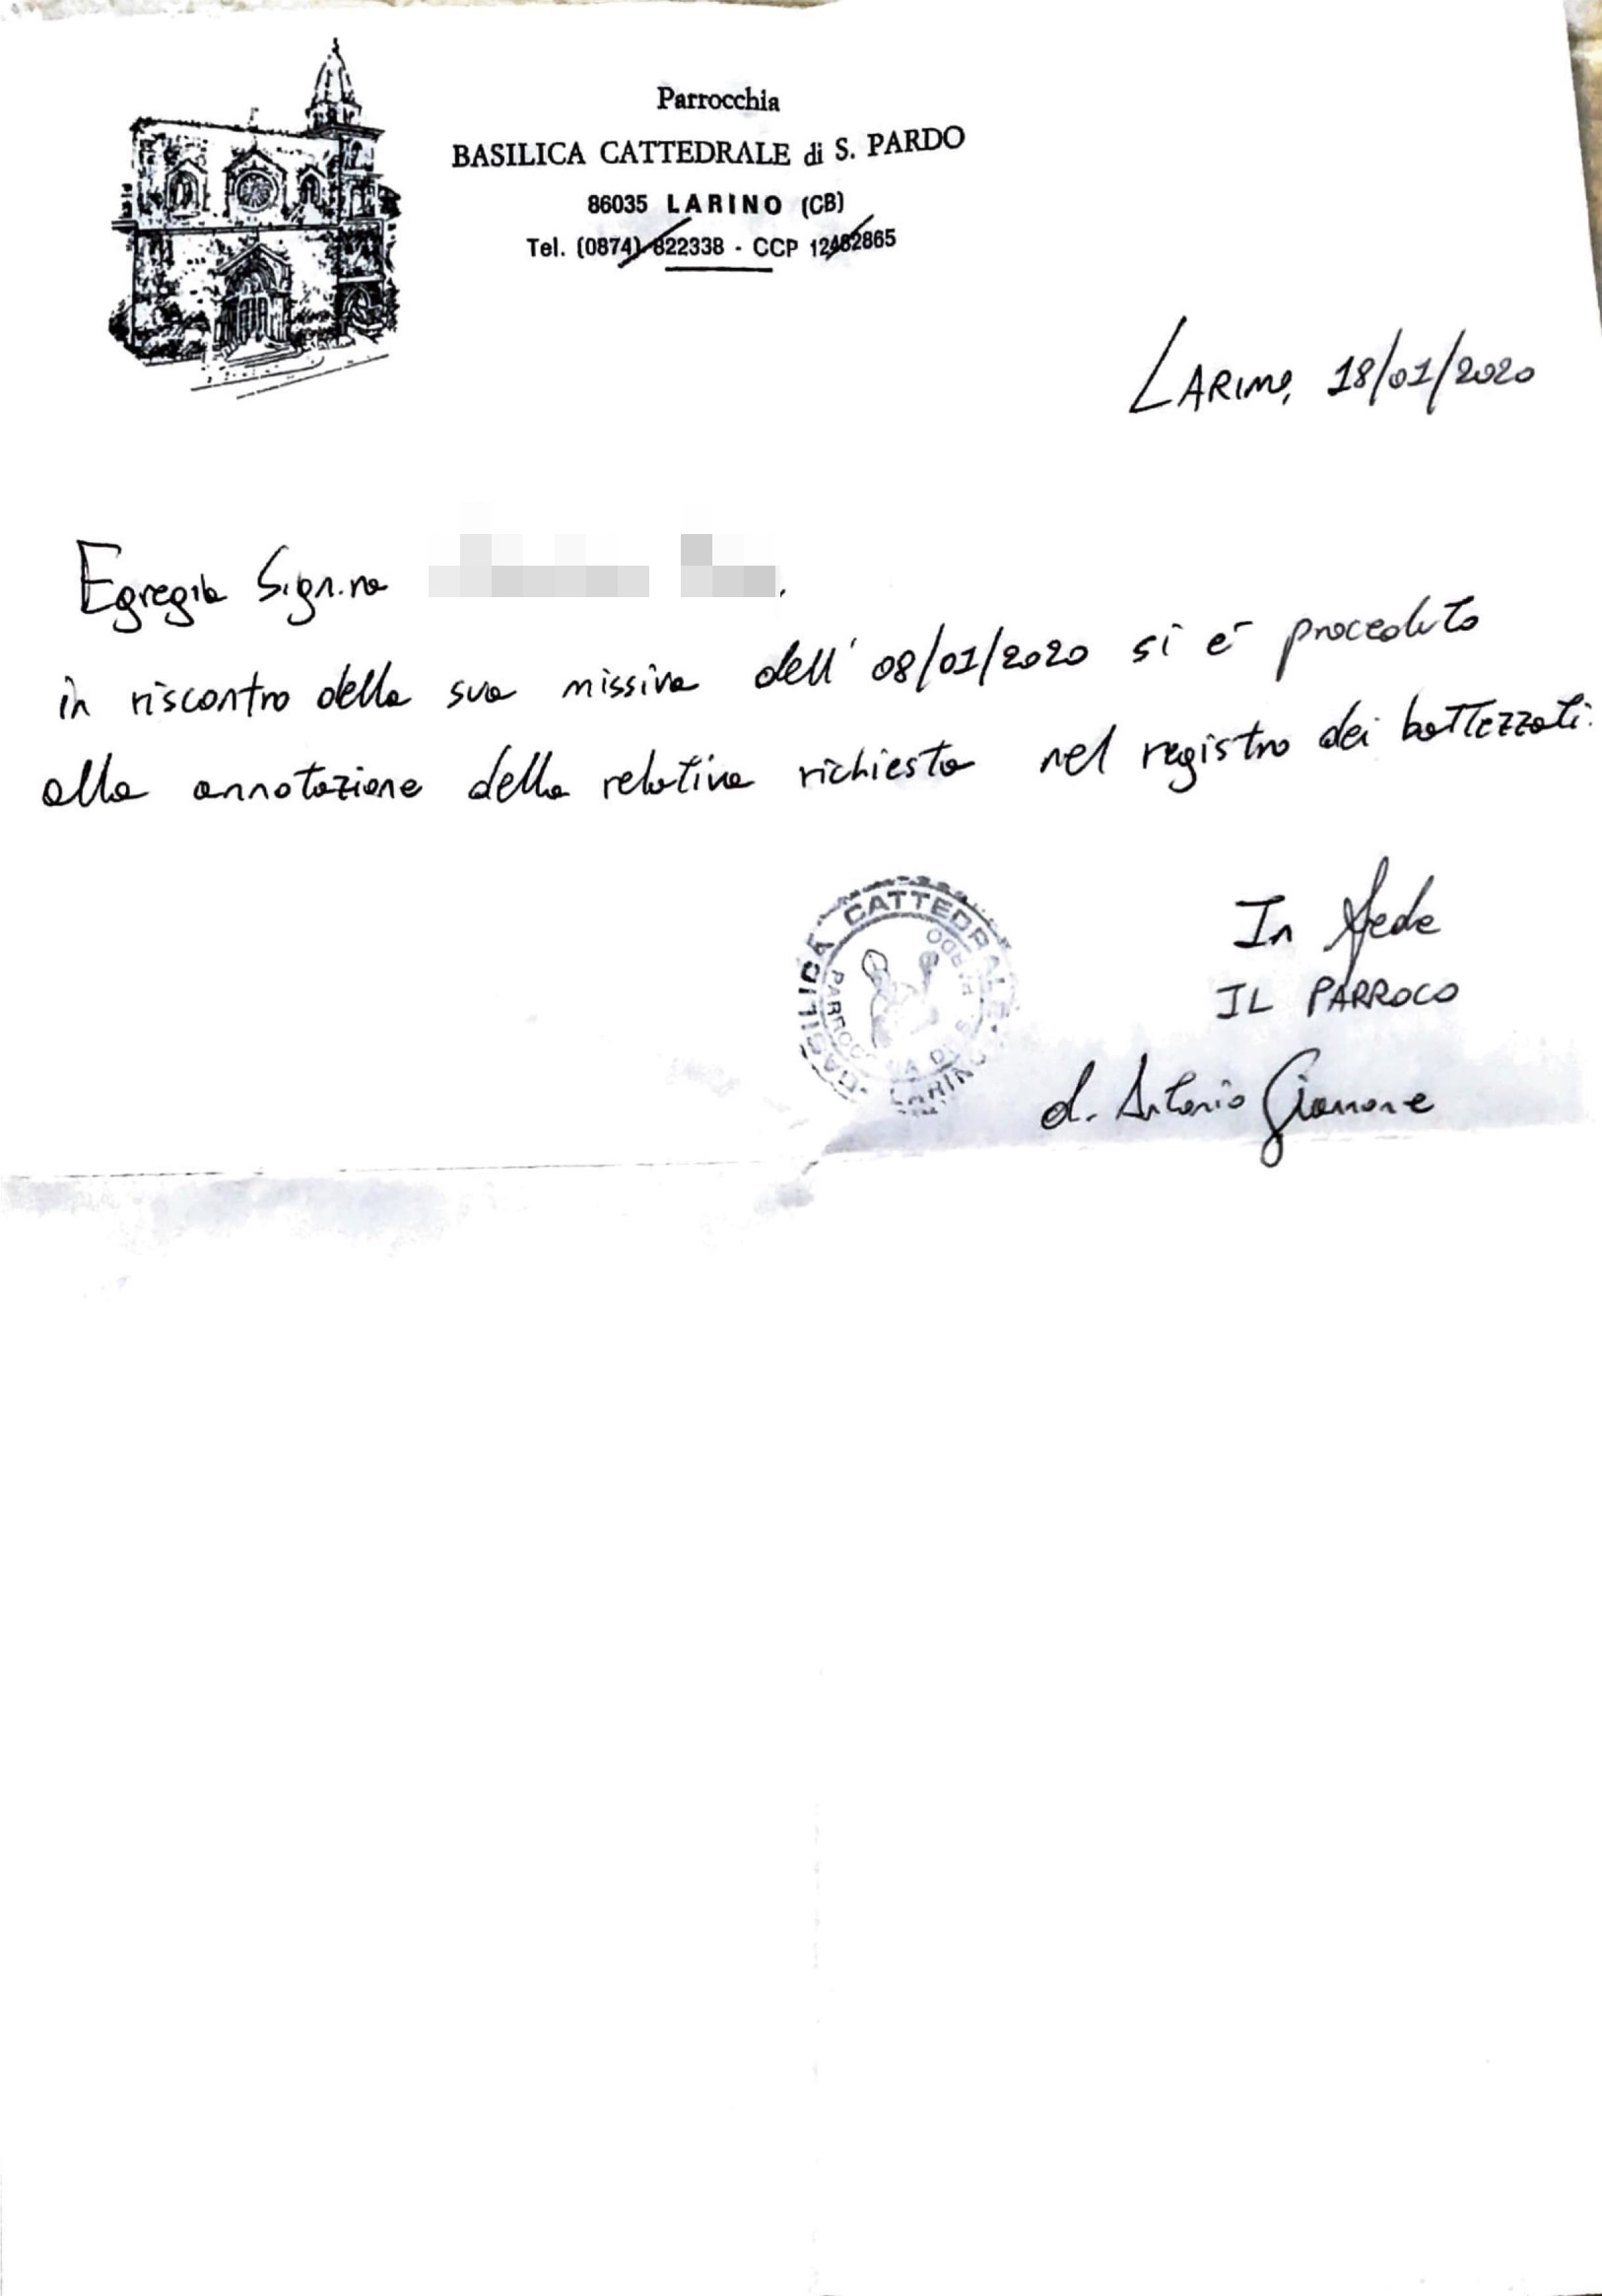 Parrocchia
BASILICA CATTEDRALE di S. PARDO
86035 LARINO (CB)
Tel. (0874) 822338 - CCP 12482865
LARINO, 18/01/2020
Egregia Sign.na
in riscontro della sua missiva dell' 08/01/2020 si è proceduto
alla annotazione della relativa richiesta nel registro dei battezzati.
BASILICA CATTEDRALE
PARROCCHIA DI S. PARDO
LARINO
In fede
IL PARROCO
d. Antonio Giannone